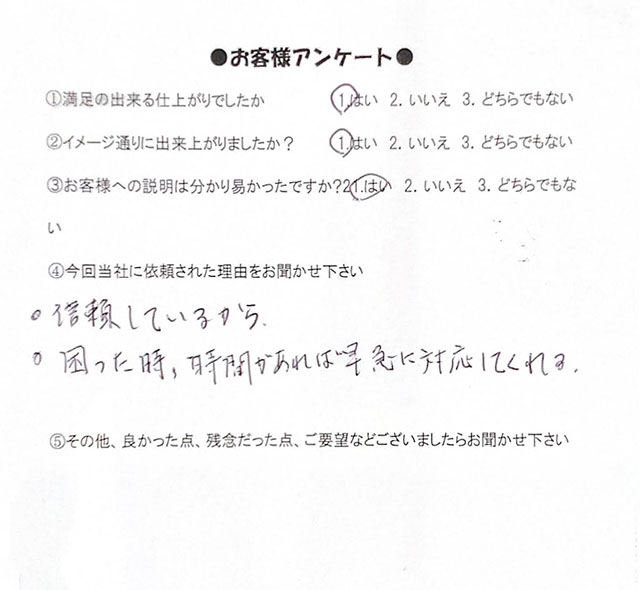 ●お客様アンケート●
①満足の出来る仕上がりでしたか 1.はい 2.いいえ 3.どちらでもない
②イメージ通りに出来上がりましたか？ 1.はい 2.いいえ 3.どちらでもない
③お客様への説明は分かり易かったですか?21.はい 2.いいえ 3.どちらでもな
い
④今回当社に依頼された理由をお聞かせ下さい
○信頼しているから.
○困った時,時間があれば早急に対応してくれる.
⑤その他、良かった点、残念だった点、ご要望などございましたらお聞かせ下さい